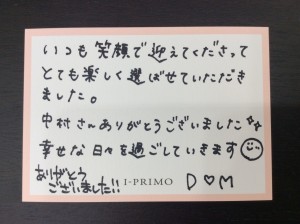 いつも笑顔で迎えてくださって
とても楽しく選ばせていただき
ました。
中村さんありがとうございました
幸せな日々を過ごしていきます
ありがとう
ございました!!
I-PRIMO
D♡M